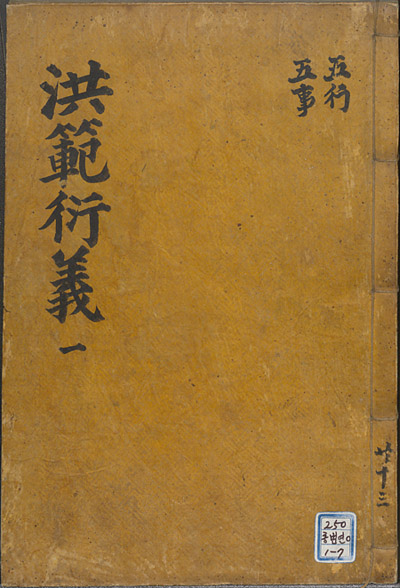 五行
五事
洪範衍義 一
共十三
250
홍범연ㅇ
1-7